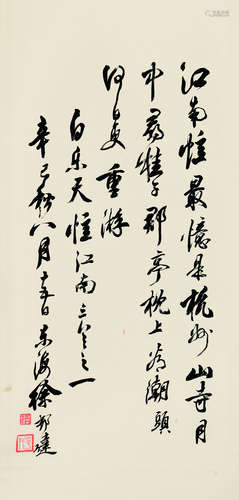 江南憶最憶是杭州山寺月
中尋桂子郡亭枕上看潮頭
何日更重游
白乐天憶江南三令之一
辛巳秋八月十五日东海徐邦達